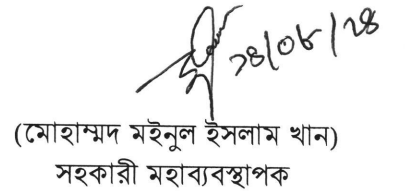 ১৪/০৮/২৪
(মোহাম্মদ মইনুল ইসলাম খান)
সহকারী মহাব্যবস্থাপক